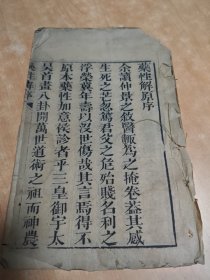 藥性解原序
余讀仲景之敘賢輒為之掩卷蓋其感
生死之茫忽篤君父之危殆賤名利之
浮榮冀年壽以沒世傷哉其言焉得不
原本藥性加意侯診者乎三皇御于太
昊首畫八卦開萬世道術之祖而神農